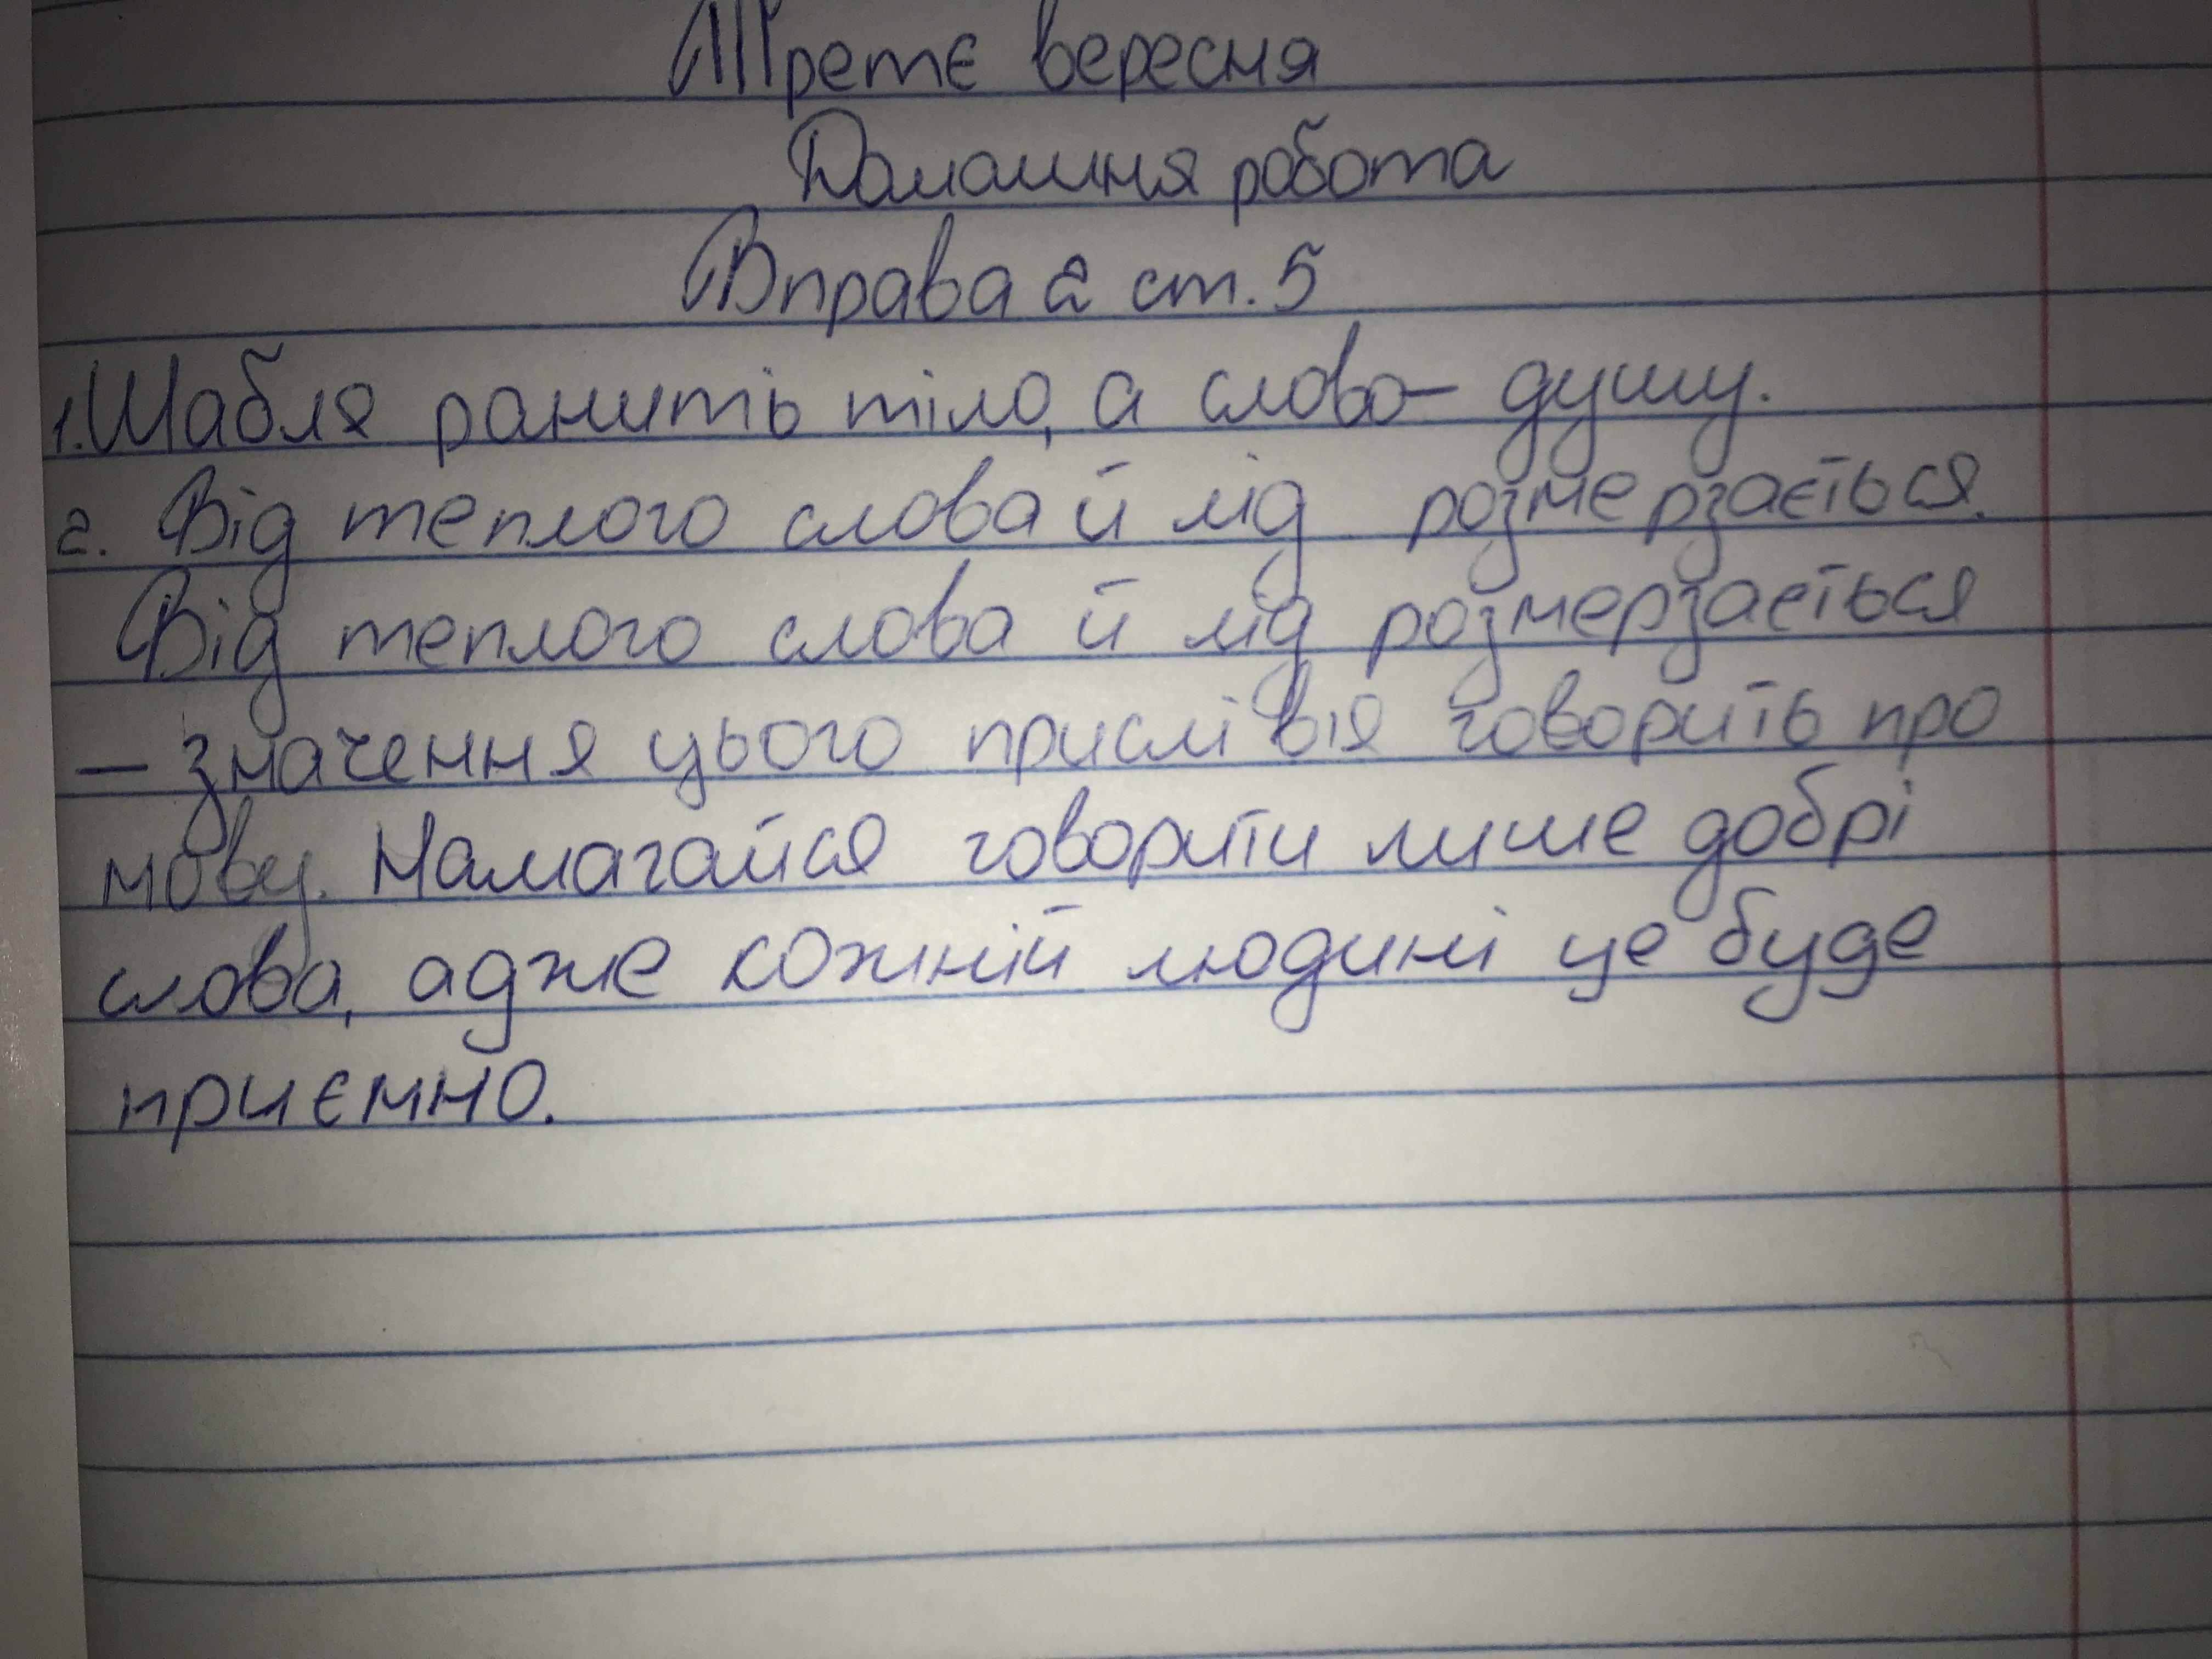 Третє вересня
Домашня робота
Вправа 2 ст. 5
1. Шабля ранить тіло, а слово – душу.
2. Від теплого слова й лід розмерзається.
Від теплого слова й лід розмерзається
– значення цього прислівія говорить про
мову. Намагайся говорити лише добрі
слова, адже кожній людині це буде
приємно.